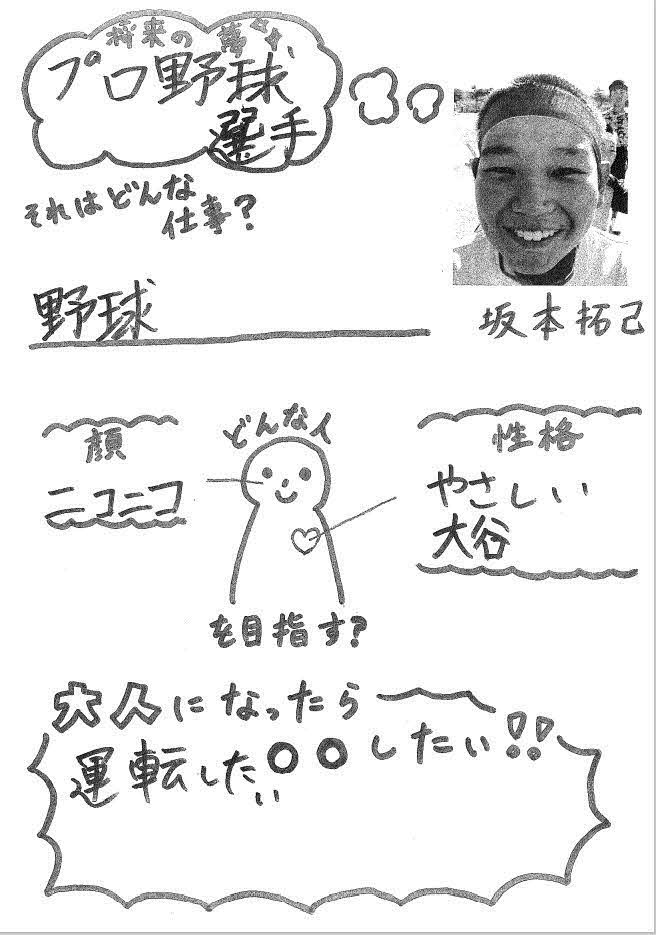 将来の夢は、
プロ野球
選手
それはどんな
仕事?
野球
坂本拓己
どんな人
顔
ニコニコ
性格
やさしい
大谷
を目指す?
大人になったら
〇〇したい!!
運転したい